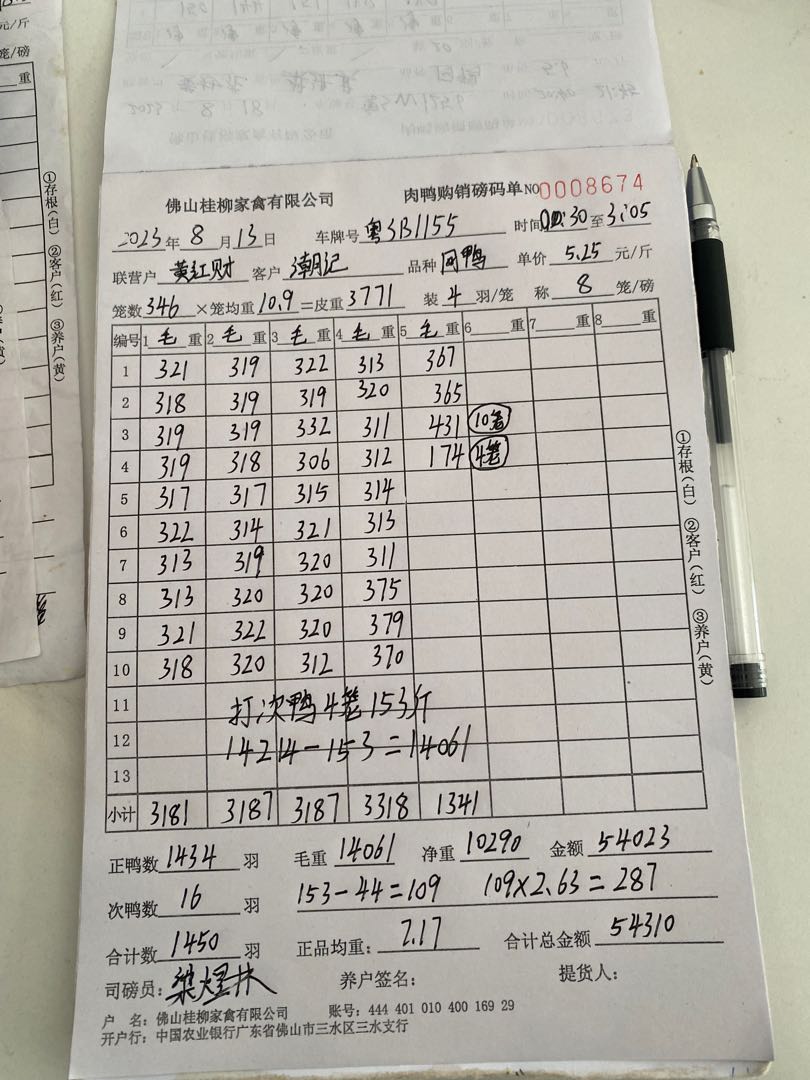 元/斤
笼/磅
重
①存根(白) ②客户(红) ③养户(黄)
佛山桂柳家禽有限公司 肉鸭购销磅码单 NO 0008674
2023年8月13日 车牌号 粤 JB1155 时间 :30至3:05
联营户 黄红财 客户 潮记 品种 冈鸭 单价 5.25 元/斤
笼数 346 ×笼均重 10.9 =皮重 3771 装 4 羽/笼 称 8 笼/磅
编号 1 毛 重 2 毛 重 3 毛 重 4 毛 重 5 毛 重 6 重 7 重 8 重
1 321 319 322 313 367
2 318 319 319 320 365
3 319 319 332 311 431 10笼
4 319 318 306 312 174 4笼
5 317 317 315 314
6 322 314 321 313
7 313 319 320 311
8 313 320 320 375
9 321 322 320 379
10 318 320 312 370
11 打次鸭4笼153斤
12 14214-153=14061
13
小计 3181 3187 3187 3318 1341
正鸭数 1434 羽 毛重 14061 净重 10290 金额 54023
次鸭数 16 羽 153-44=109 109×2.63=287
合计数 1450 羽 正品均重: 7.17 合计总金额 54310
司磅员: 梁煜林 养户签名: 提货人:
户 名: 佛山桂柳家禽有限公司 账号: 444 401 010 400 169 29
开户行: 中国农业银行广东省佛山市三水区三水支行
①存根(白) ②客户(红) ③养户(黄)